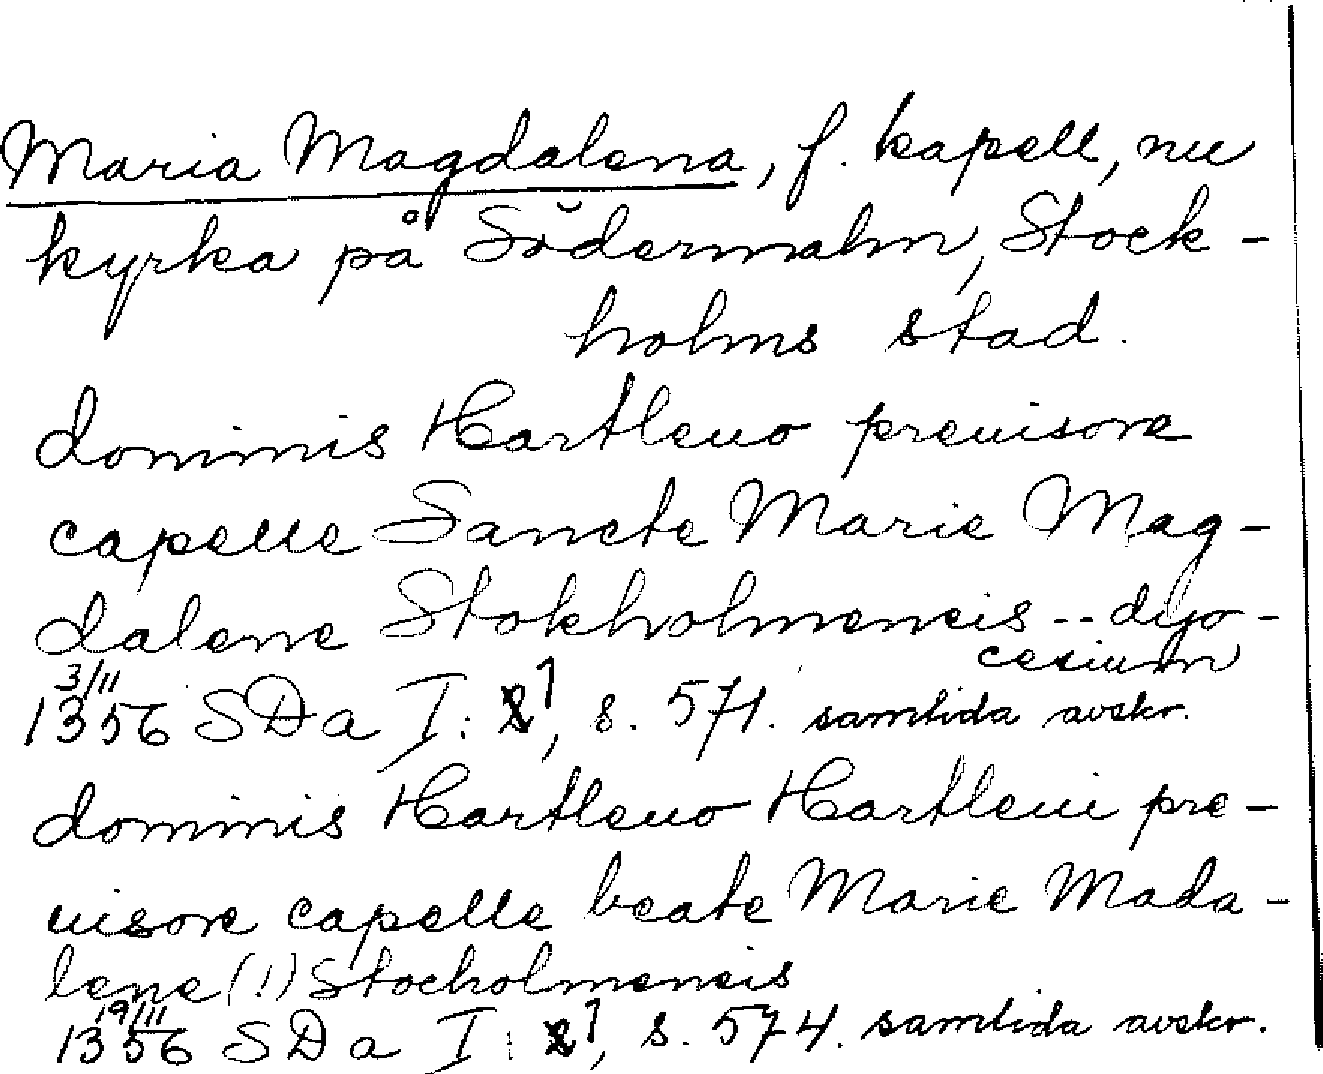 Maria Magdalena, f. kapell, nu
kyrka på Södermalm, Stock-
holms stad.
dominis Hartleuo preuisore
capelle Sancte Marie Mag-
dalene Stokholmensis -- dyo-
cesium
3/11
1356 SDa I: 1, s. 571. samtida avskr.
dominis Hartleuo Hartleui pre-
uisore capelle beate Marie Mada-
lene (!) Stocholmensis
19/11
1356 SDa I: 1, s. 574. samtida avskr.